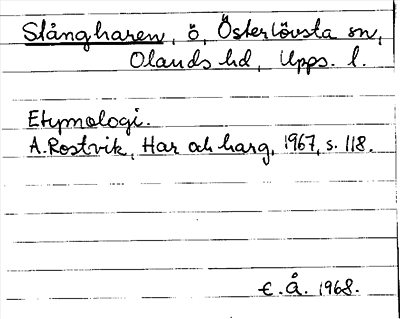 Stångharen, ö, Österlövsta sn,
Olands hd, Upps. l.
Etymologi.
A. Rostvik, Har och harg, 1967, s. 118.
E. Å. 1968.